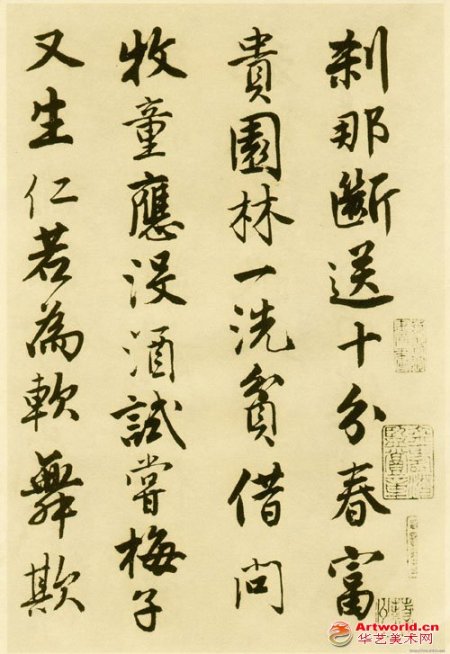 刹那斷送十分春富
貴園林一洗貧借問
牧童應沒酒試嘗梅子
又生仁若為軟舞欺
Artworld.cn
华艺美术网